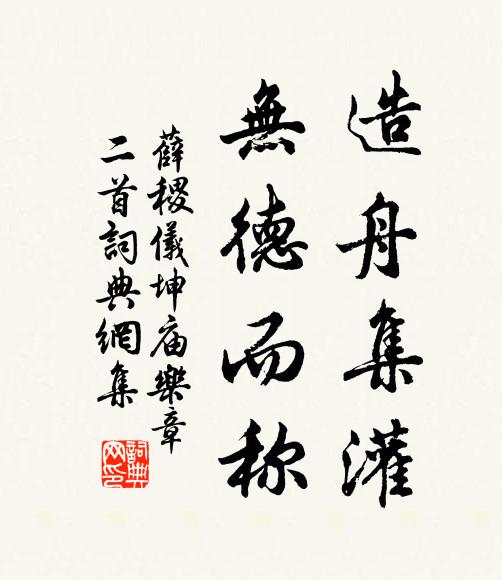 造舟集灌
無德而称
薛稷儀坤庙樂章
二首詞典網集
詞典网印